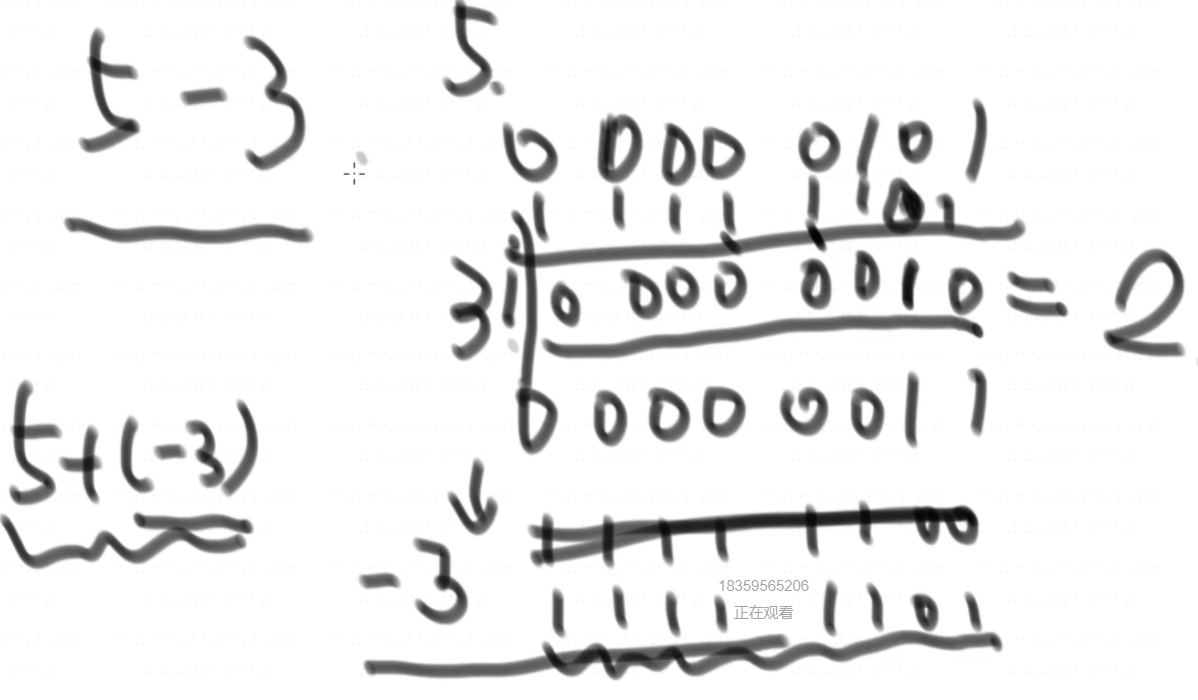 5 - 3
5.
0 000 0101
1 111 1101
3 1 0 000 0010 = 2
0 000 0011
5 + (-3)
1 111 1100
-3
1111 1101
18359565206
正在观看